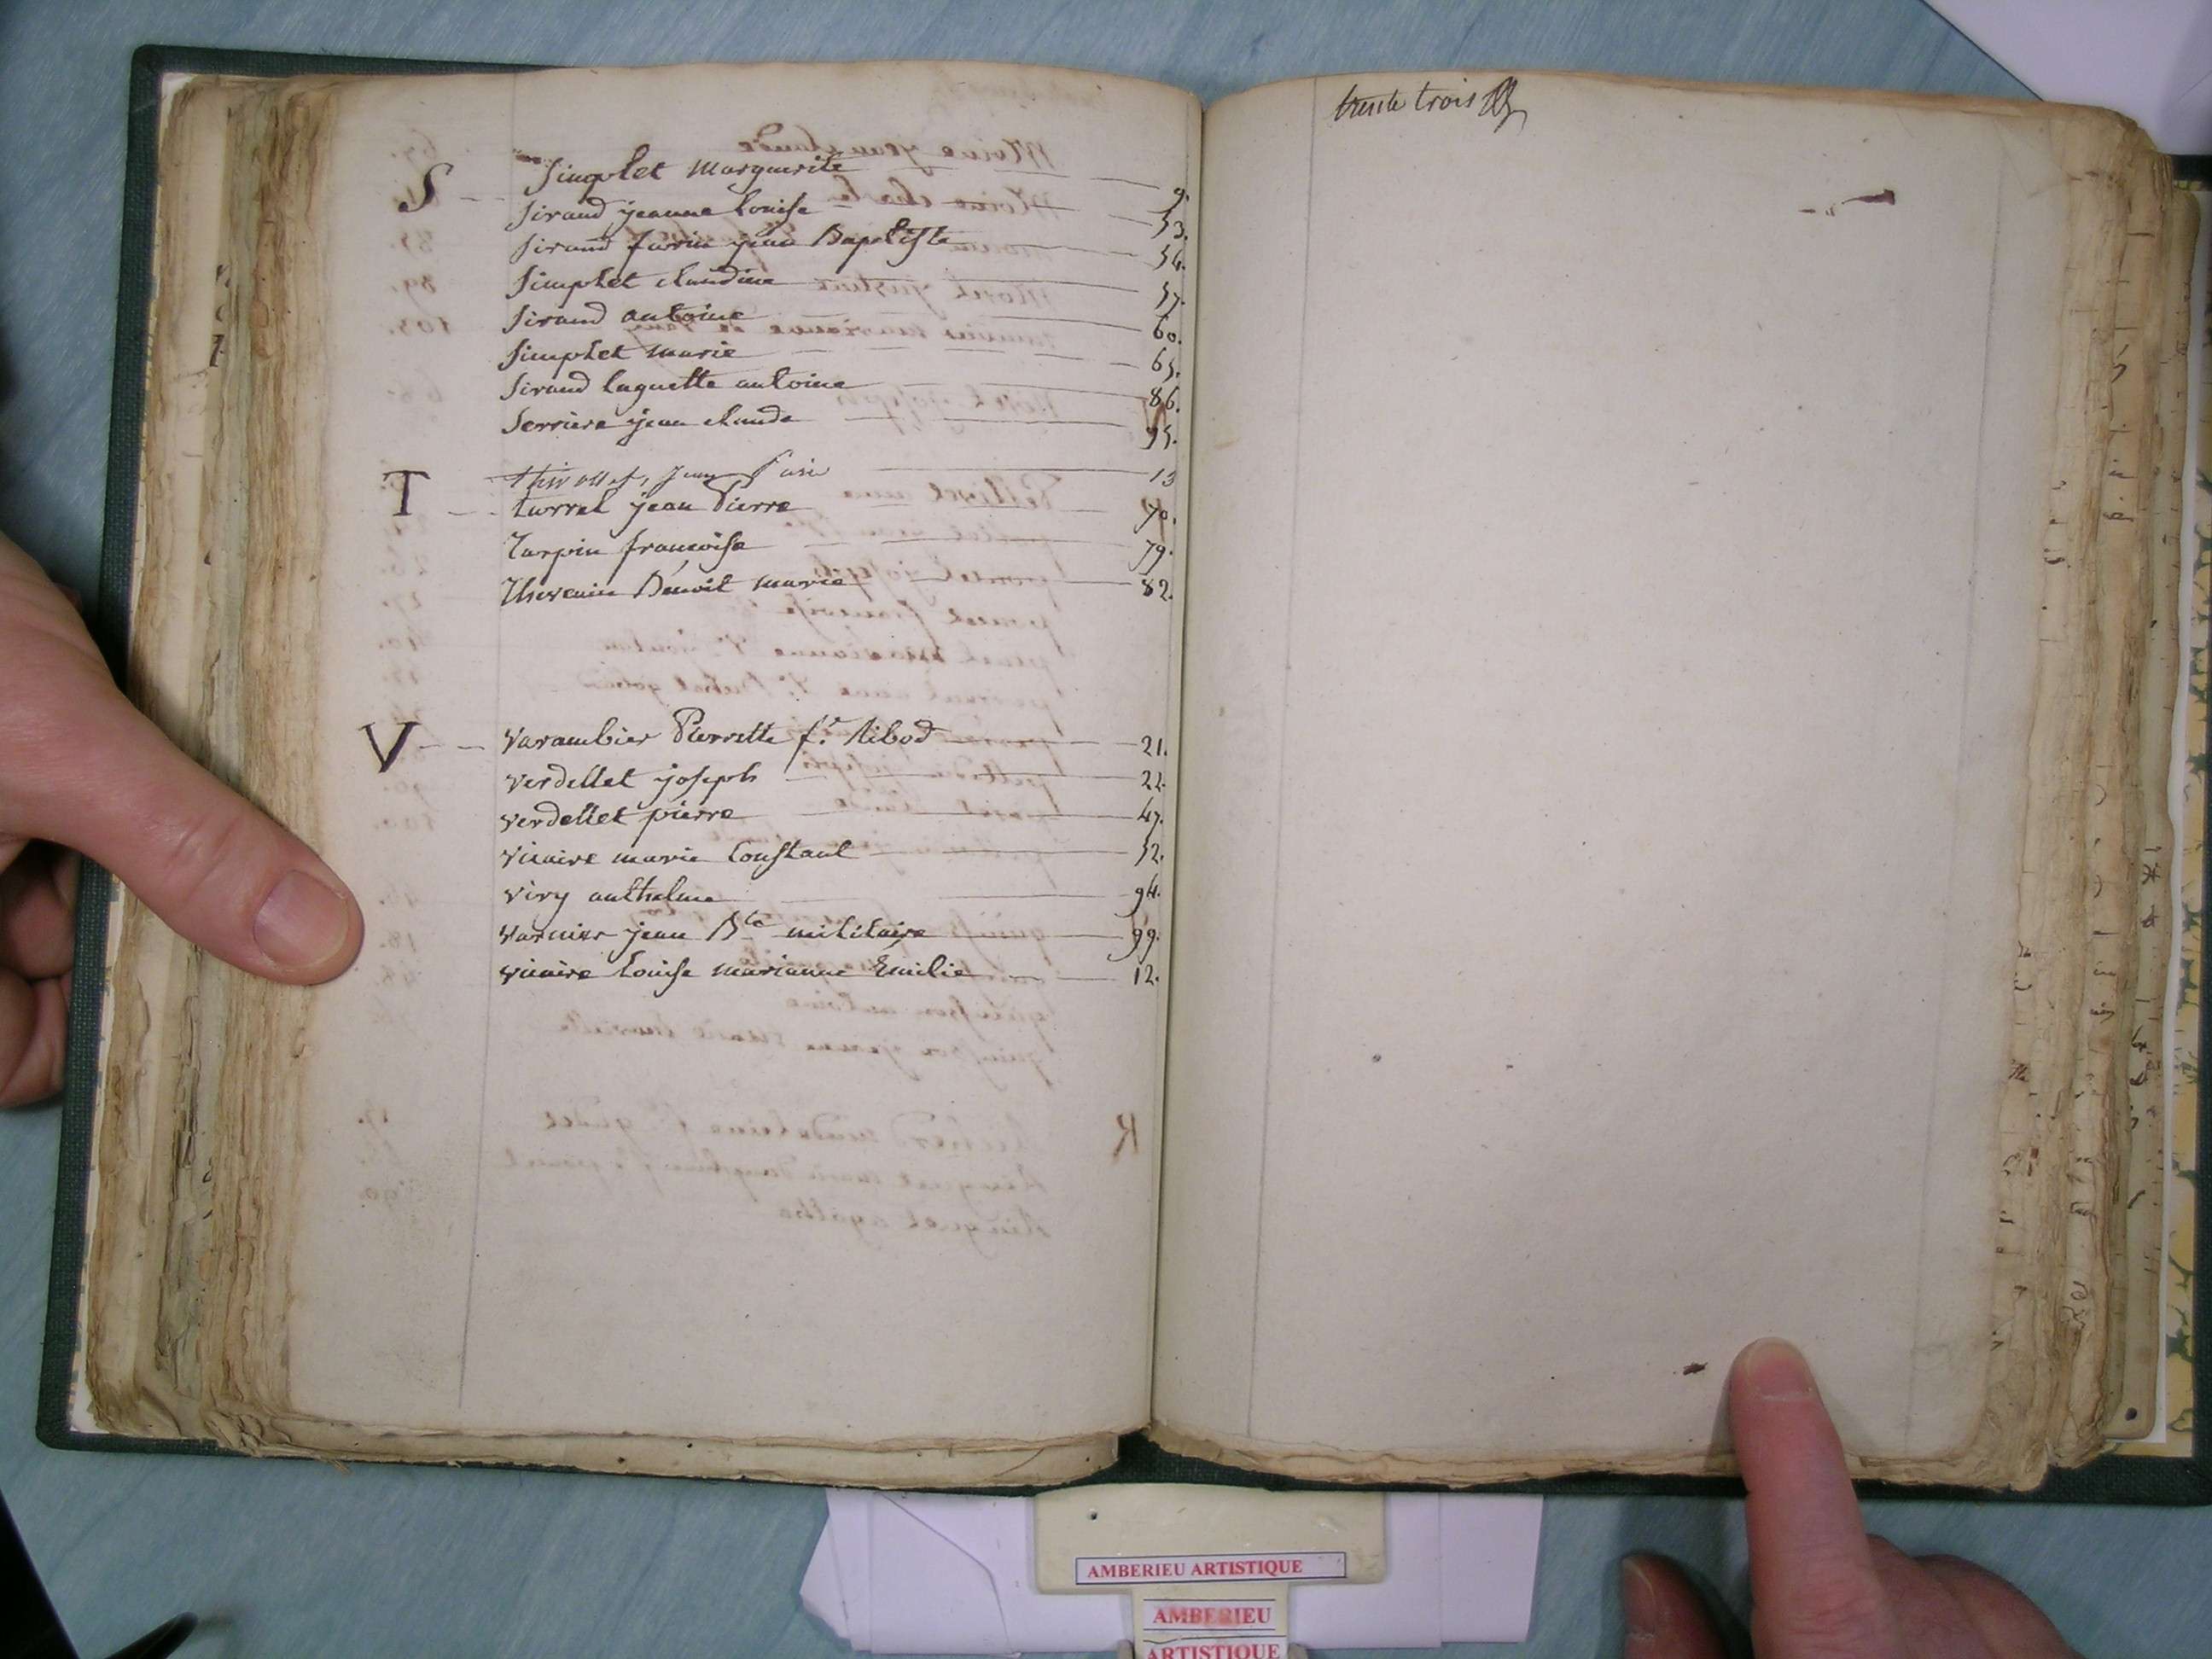 S -- Simplet Marguerite 9.
Sirand jeanne Louise 53.
Sirand Jean Baptiste 54.
Simplet claudine 57.
Sirand antoine 60.
Simplet marie 65.
Sirand Luguette antoine 86.
Serriere jean claude 95.
T -- 13
turrel jean Pierre 70.
Turpin françoise 79.
Thevenin Benoit marie 82.
V -- Varambier Pierrette f.e Ribod 21.
Verdellet joseph 22.
Verdellet pierre 47.
Vicaire marie Constant 52.
Viry anthelme 94.
Varnier jean Bte militaire 99.
Vicaire Louise marianne Emilie 12.
trente trois
AMBERIEU ARTISTIQUE
AMBERIEU
ARTISTIQUE